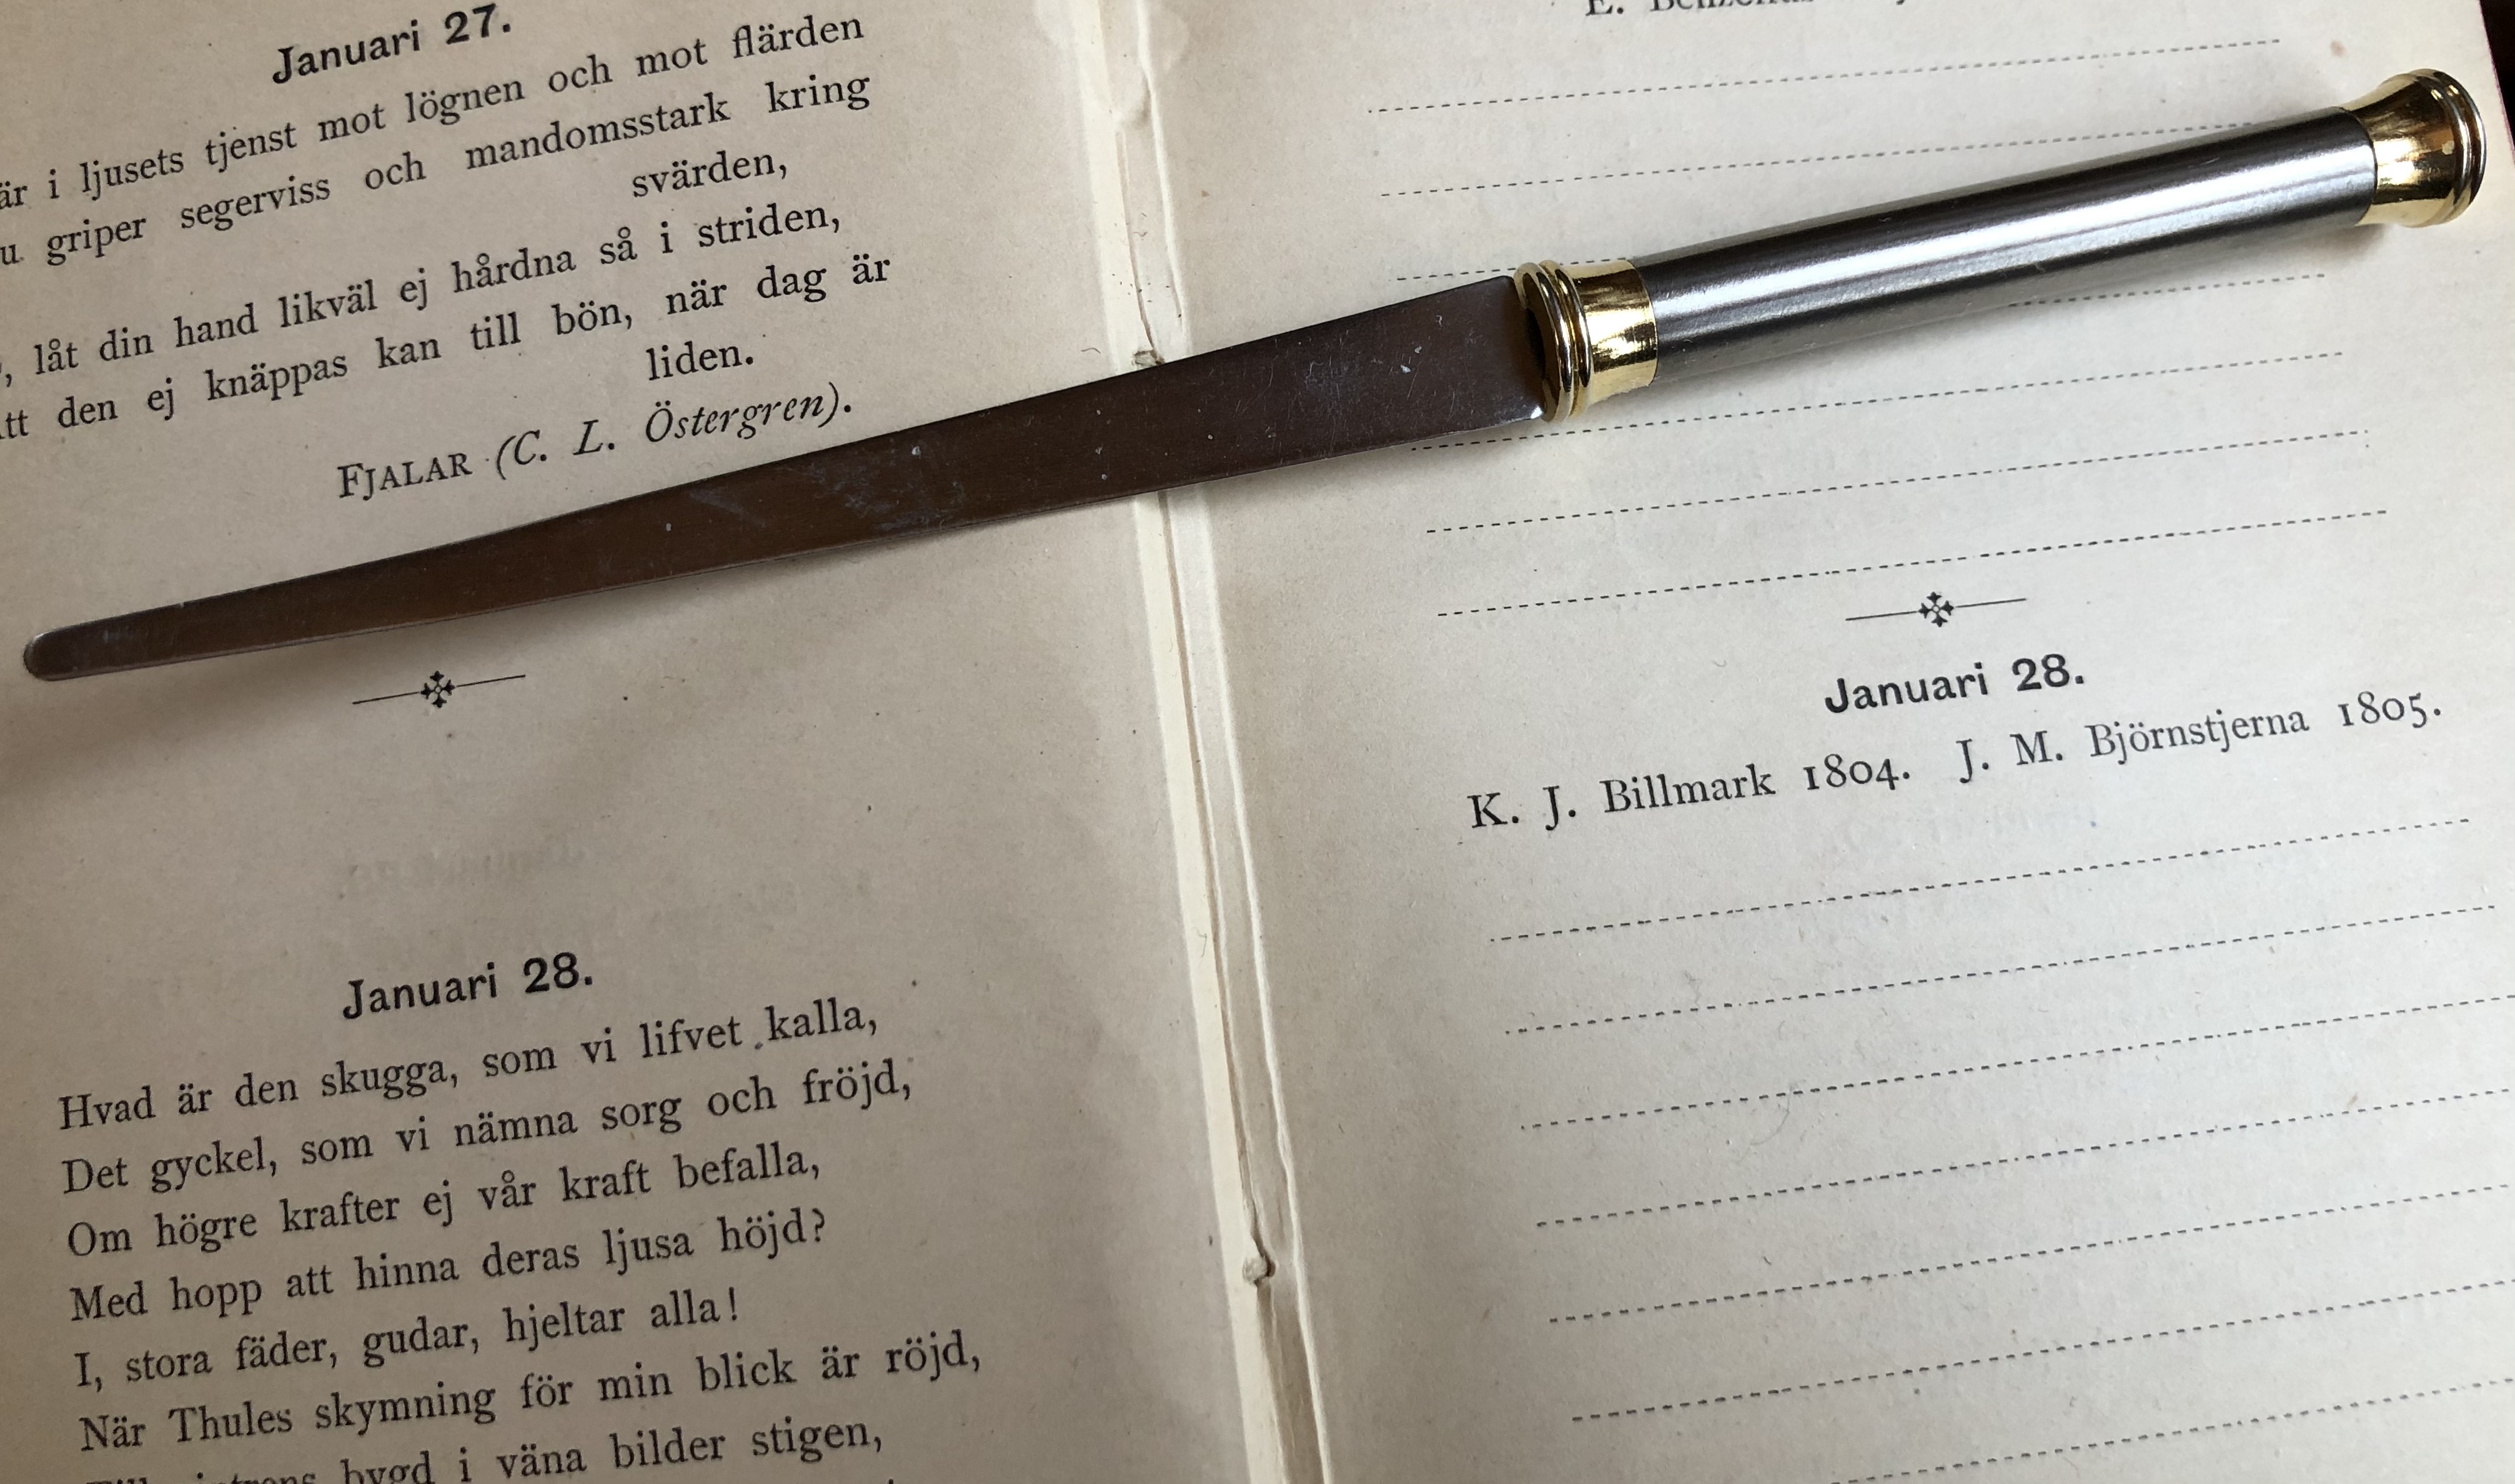 Januari 27.
är i ljusets tjenst mot lögnen och mot flärden
griper segerviss och mandomsstark kring
svärden,
låt din hand likväl ej hårdna så i striden,
den ej knäppas kan till bön, när dag är
liden.
FJALAR (C. L. Östergren).
Januari 28.
Hvad är den skugga, som vi lifvet kalla,
Det gyckel, som vi nämna sorg och fröjd,
Om högre krafter ej vår kraft befalla,
Med hopp att hinna deras ljusa höjd?
I, stora fäder, gudar, hjeltar alla!
När Thules skymning för min blick är röjd,
bygd i väna bilder stigen,
E.
Januari 28.
K. J. Billmark 1804. J. M. Björnstjerna 1805.